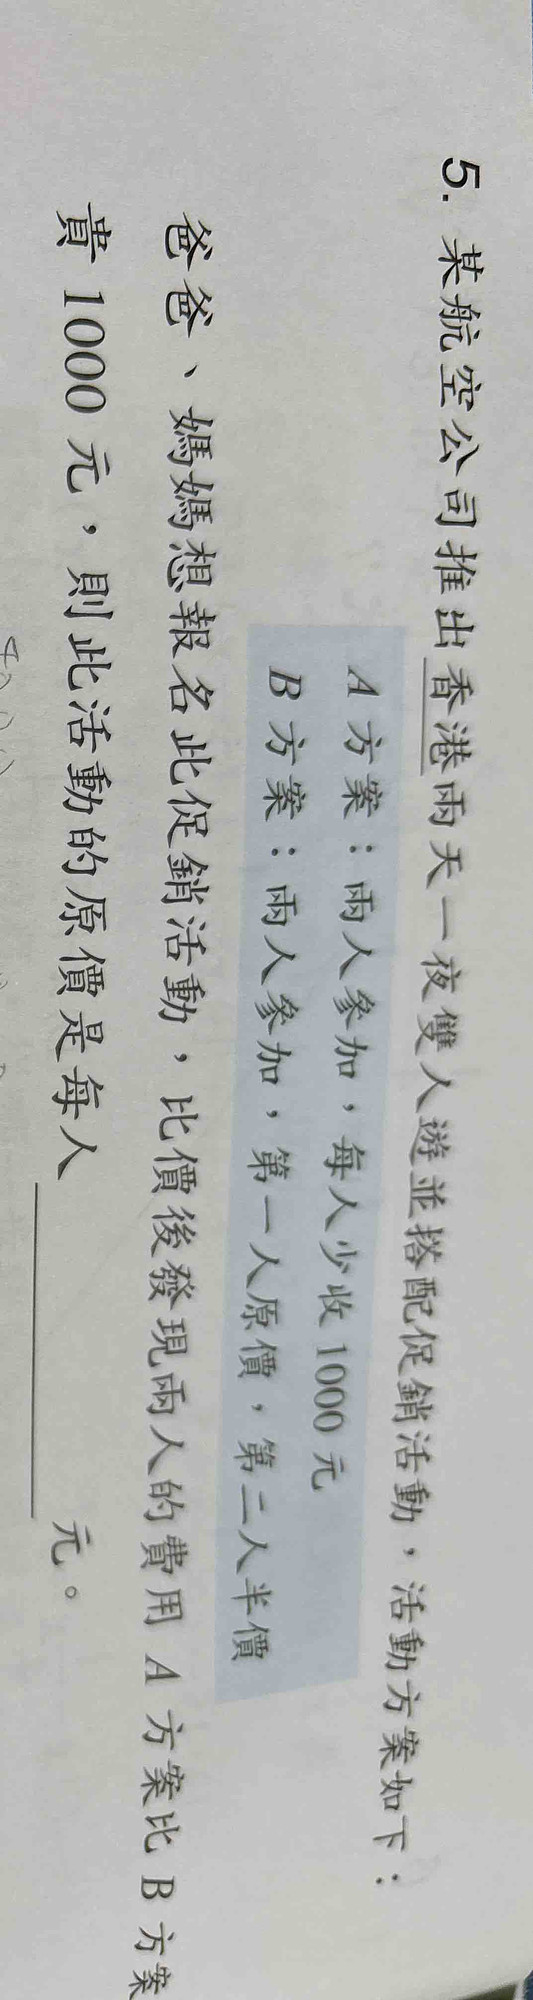 5. 某航空公司推出香港兩天一夜雙人遊並搭配促銷活動，活動方案如下：
A 方案：兩人參加，每人少收 1000 元
B 方案：兩人參加，第一人原價，第二人半價
爸爸、媽媽想報名此促銷活動，比價後發現兩人的費用 A 方案比 B 方案
貴 1000 元，則此活動的原價是每人 元。